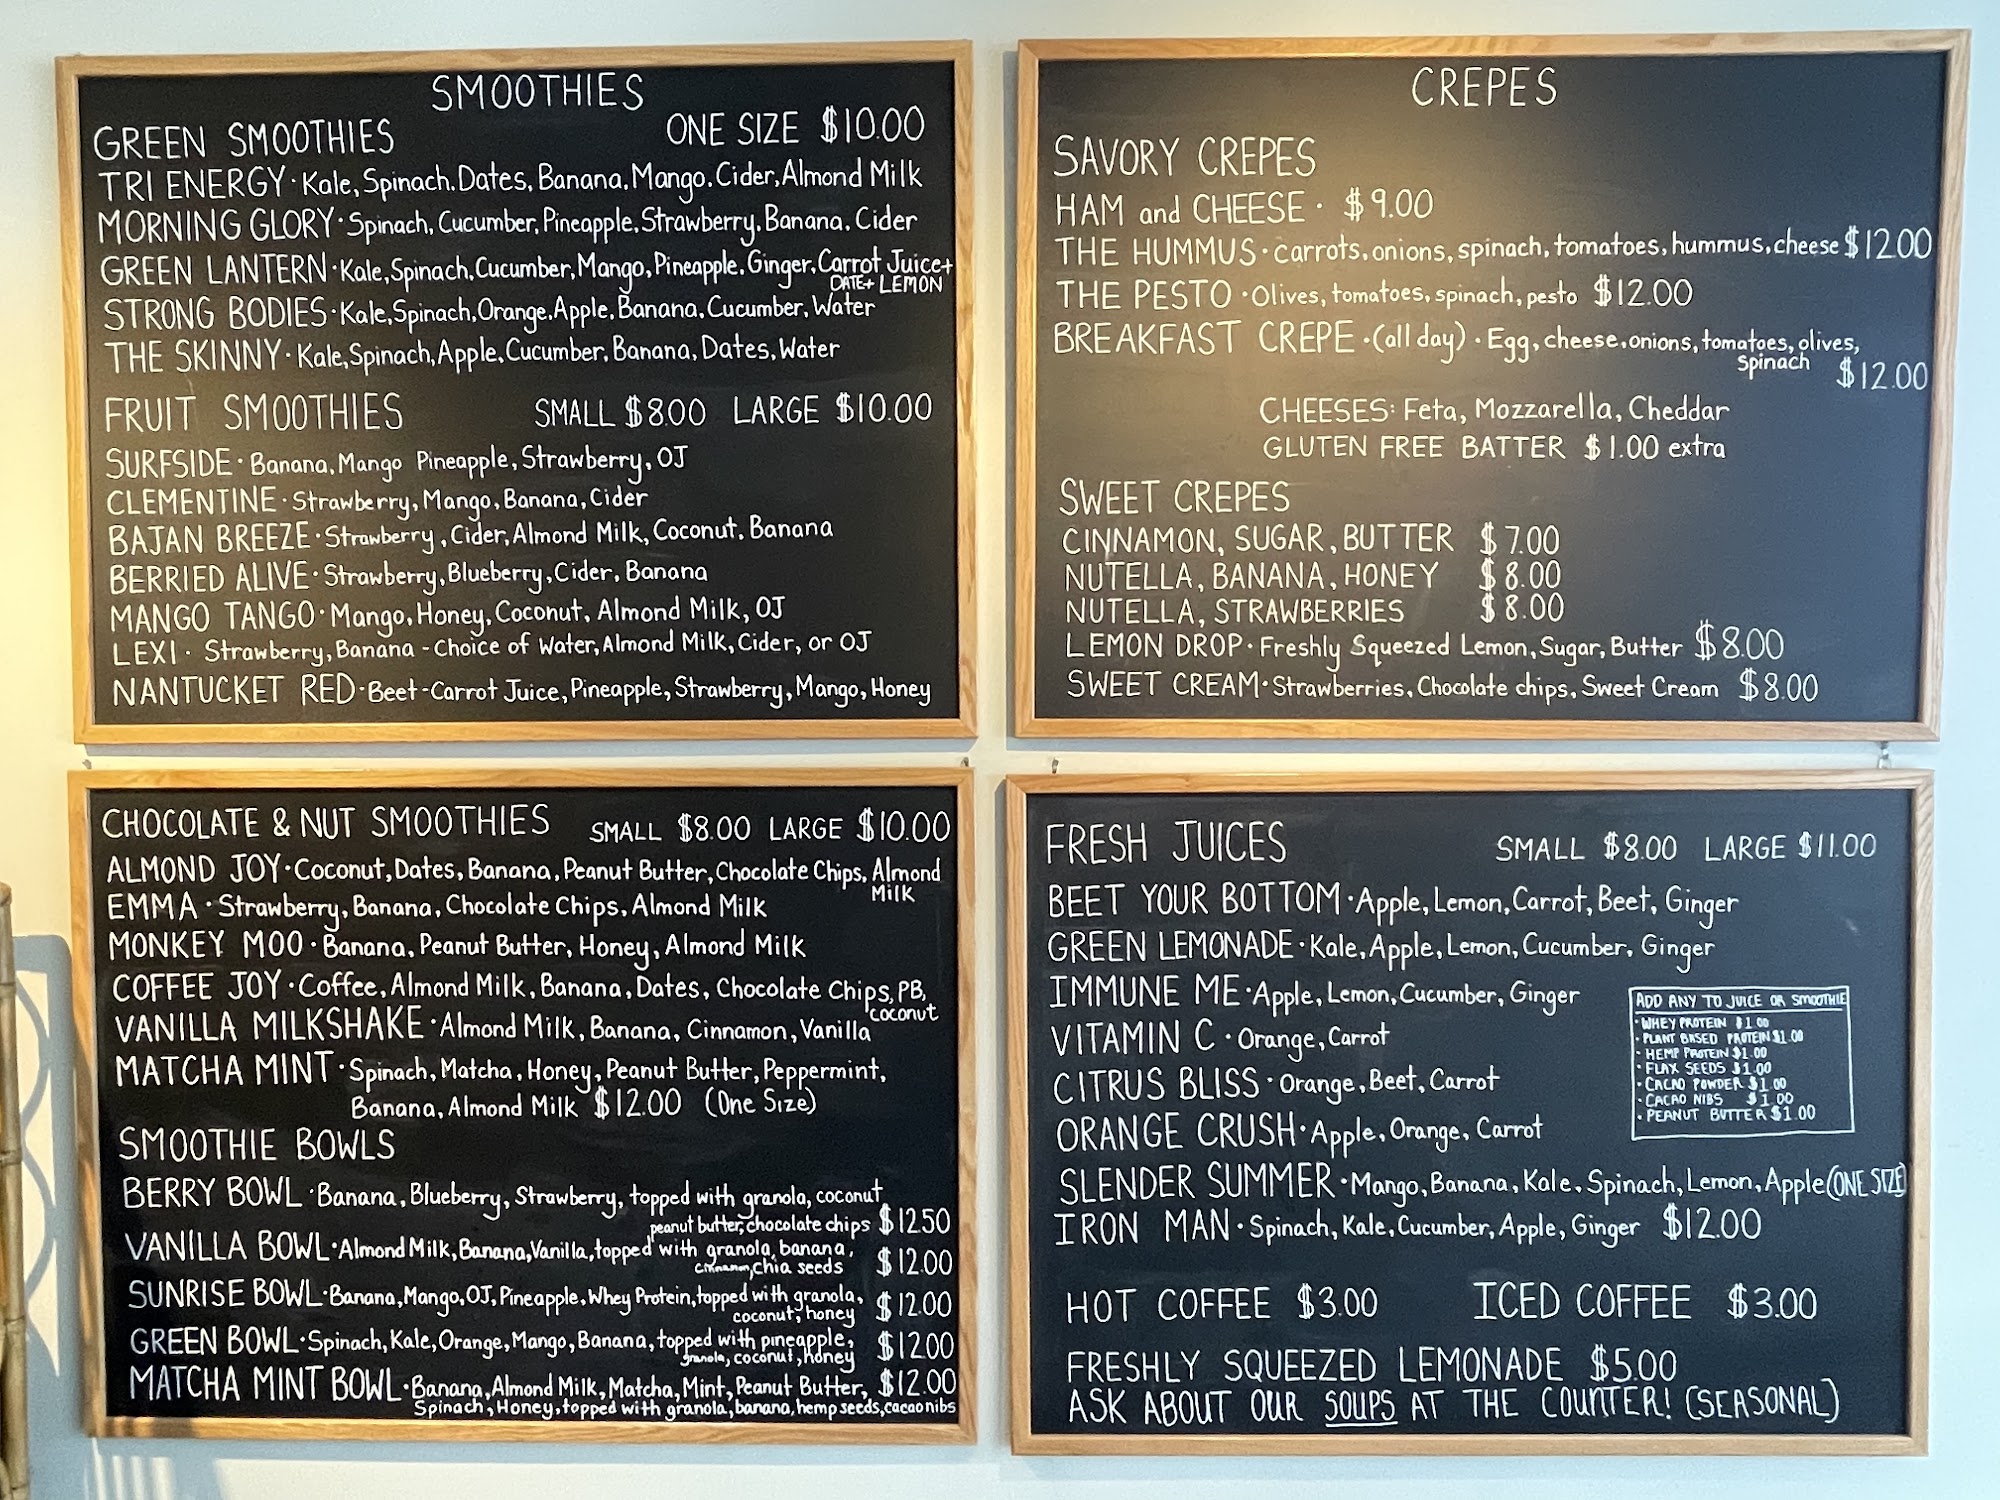 SMOOTHIES
GREEN SMOOTHIES ONE SIZE $10.00
TRI ENERGY · Kale, Spinach. Dates, Banana, Mango. Cider, Almond Milk
MORNING GLORY · Spinach, Cucumber, Pineapple, Strawberry, Banana. Cider
GREEN LANTERN · Kale, Spinach, Cucumber, Mango, Pineapple. Ginger, Carrot Juice +
DATE + LEMON
STRONG BODIES · Kale, Spinach, Orange, Apple, Banana, Cucumber, Water
THE SKINNY · Kale, Spinach, Apple, Cucumber, Banana, Dates, Water
FRUIT SMOOTHIES SMALL $8.00 LARGE $10.00
SURFSIDE · Banana, Mango Pineapple, Strawberry, OJ
CLEMENTINE · Strawberry, Mango, Banana, Cider
BAJAN BREEZE · Strawberry, Cider, Almond Milk, Coconut, Banana
BERRIED ALIVE · Strawberry, Blueberry, Cider, Banana
MANGO TANGO · Mango, Honey, Coconut, Almond Milk, OJ
LEXI · Strawberry, Banana - Choice of Water, Almond Milk, Cider, or OJ
NANTUCKET RED · Beet-Carrot Juice, Pineapple, Strawberry, Mango, Honey
CREPES
SAVORY CREPES
HAM and CHEESE · $9.00
THE HUMMUS · carrots, onions, spinach, tomatoes, hummus, cheese $12.00
THE PESTO · Olives, tomatoes, spinach, pesto $12.00
BREAKFAST CREPE · (all day) · Egg, cheese, onions, tomatoes, olives,
Spinach $12.00
CHEESES: Feta, Mozzarella, Cheddar
GLUTEN FREE BATTER $1.00 extra
SWEET CREPES
CINNAMON, SUGAR, BUTTER $7.00
NUTELLA, BANANA, HONEY $8.00
NUTELLA, STRAWBERRIES $8.00
LEMON DROP · Freshly Squeezed Lemon, Sugar, Butter $8.00
SWEET CREAM · Strawberries, Chocolate chips, Sweet Cream $8.00
CHOCOLATE & NUT SMOOTHIES SMALL $8.00 LARGE $10.00
ALMOND JOY · Coconut, Dates, Banana, Peanut Butter, Chocolate Chips, Almond
Milk
EMMA · Strawberry, Banana, Chocolate Chips, Almond Milk
MONKEY MOO · Banana, Peanut Butter, Honey, Almond Milk
COFFEE JOY · Coffee, Almond Milk, Banana, Dates, Chocolate Chips, PB,
coconut
VANILLA MILKSHAKE · Almond Milk, Banana, Cinnamon, Vanilla
MATCHA MINT · Spinach, Matcha, Honey, Peanut Butter, Peppermint,
Banana, Almond Milk $12.00 (One Size)
SMOOTHIE BOWLS
BERRY BOWL · Banana, Blueberry, Strawberry, topped with granola, coconut
peanut butter, chocolate chips $12.50
VANILLA BOWL · Almond Milk, Banana, Vanilla, topped with granola, banana,
cinnamon, chia seeds $12.00
SUNRISE BOWL · Banana, Mango, OJ, Pineapple, Whey Protein, topped with granola,
coconut, honey $12.00
GREEN BOWL · Spinach, Kale, Orange, Mango, Banana, topped with pineapple,
granola, coconut, honey $12.00
MATCHA MINT BOWL · Banana, Almond Milk, Matcha, Mint, Peanut Butter, $12.00
Spinach, Honey, topped with granola, banana, hemp seeds, cacao nibs
FRESH JUICES SMALL $8.00 LARGE $11.00
BEET YOUR BOTTOM · Apple, Lemon, Carrot, Beet, Ginger
GREEN LEMONADE · Kale, Apple, Lemon, Cucumber, Ginger
IMMUNE ME · Apple, Lemon, Cucumber, Ginger
VITAMIN C · Orange, Carrot
CITRUS BLISS · Orange, Beet, Carrot
ORANGE CRUSH · Apple, Orange, Carrot
ADD ANY TO JUICE OR SMOOTHIE
· WHEY PROTEIN $1.00
· PLANT BASED PROTEIN $1.00
· HEMP PROTEIN $1.00
· FLAX SEEDS $1.00
· CACAO POWDER $1.00
· CACAO NIBS $1.00
· PEANUT BUTTER $1.00
SLENDER SUMMER · Mango, Banana, Kale, Spinach, Lemon, Apple (ONE SIZE)
IRON MAN · Spinach, Kale, Cucumber, Apple, Ginger $12.00
HOT COFFEE $3.00 ICED COFFEE $3.00
FRESHLY SQUEEZED LEMONADE $5.00
ASK ABOUT OUR SOUPS AT THE COUNTER! (SEASONAL)